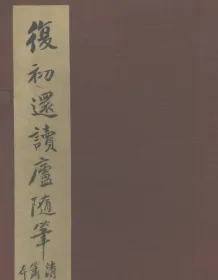 復初還讀廬隨筆
清